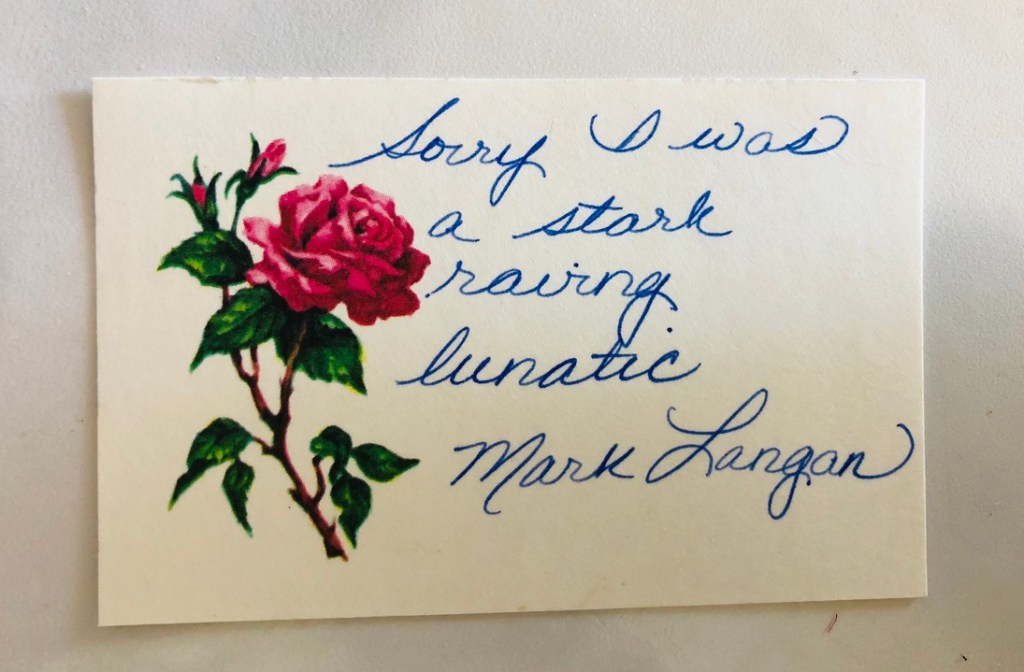 Sorry I was
a stark
raving
lunatic
Mark Langan